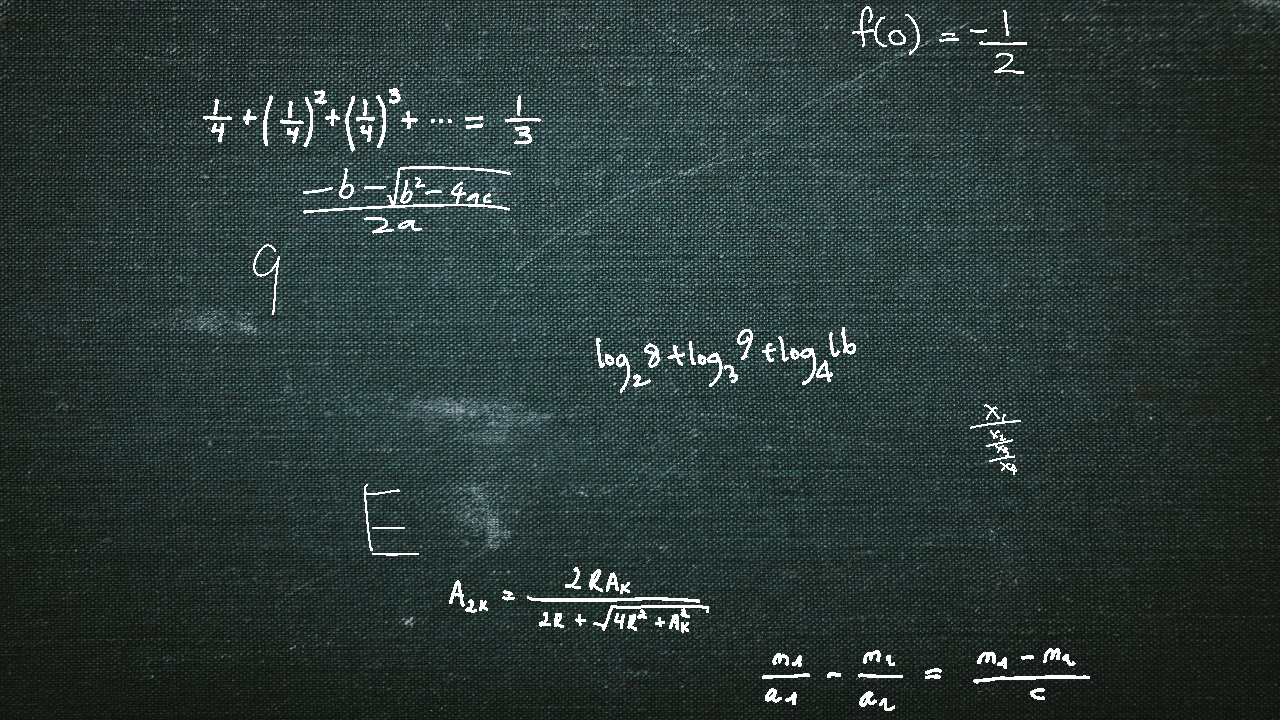 f(0) = -1/2
1/4 + (1/4)² + (1/4)³ + ··· = 1/3
(-b - √(b² - 4ac))/(2a)
9
log₂8 + log₃9 + log₄16
x₁/(x₂/(x₃/x₄))
E
A₂ₖ = 2RAₖ/(2R + √(4R² + Aₖ²))
m₁/a₁ - m₂/a₂ = (m₁ - m₂)/c